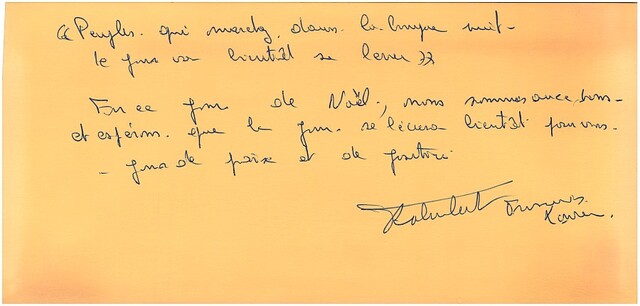 « Peuples qui marchez dans la longue nuit
le jour va bientôt se lever »
En ce jour de Noël, nous sommes avec vous
et espérons que le jour se lèvera bientôt pour vous
jour de paix et de justice